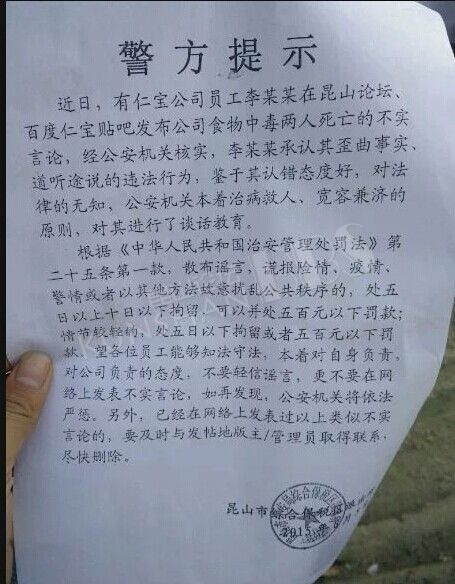 警方提示
近日，有仁宝公司员工李某某在昆山论坛、
百度仁宝贴吧发布公司食物中毒两人死亡的不实
言论，经公安机关核实，李某某承认其歪曲事实、
道听途说的违法行为，鉴于其认错态度好，对法
律的无知，公安机关本着治病救人、宽容兼济的
原则，对其进行了谈话教育。
根据《中华人民共和国治安管理处罚法》第
二十五条第一款，散布谣言，谎报险情、疫情、
警情或者以其他方法故意扰乱公共秩序的，处五
日以上十日以下拘留，可以并处五百元以下罚款；
情节较轻的，处五日以下拘留或者五百元以下罚
款，望各位员工能够知法守法，本着对自身负责，
对公司负责的态度，不要轻信谣言，更不要在网
络上发表不实言论，如再发现，公安机关将依法
严惩。另外，已经在网络上发表过以上类似不实
言论的，要及时与发帖地版主/管理员取得联系，
尽快删除。
昆山市综合保税区
2015年